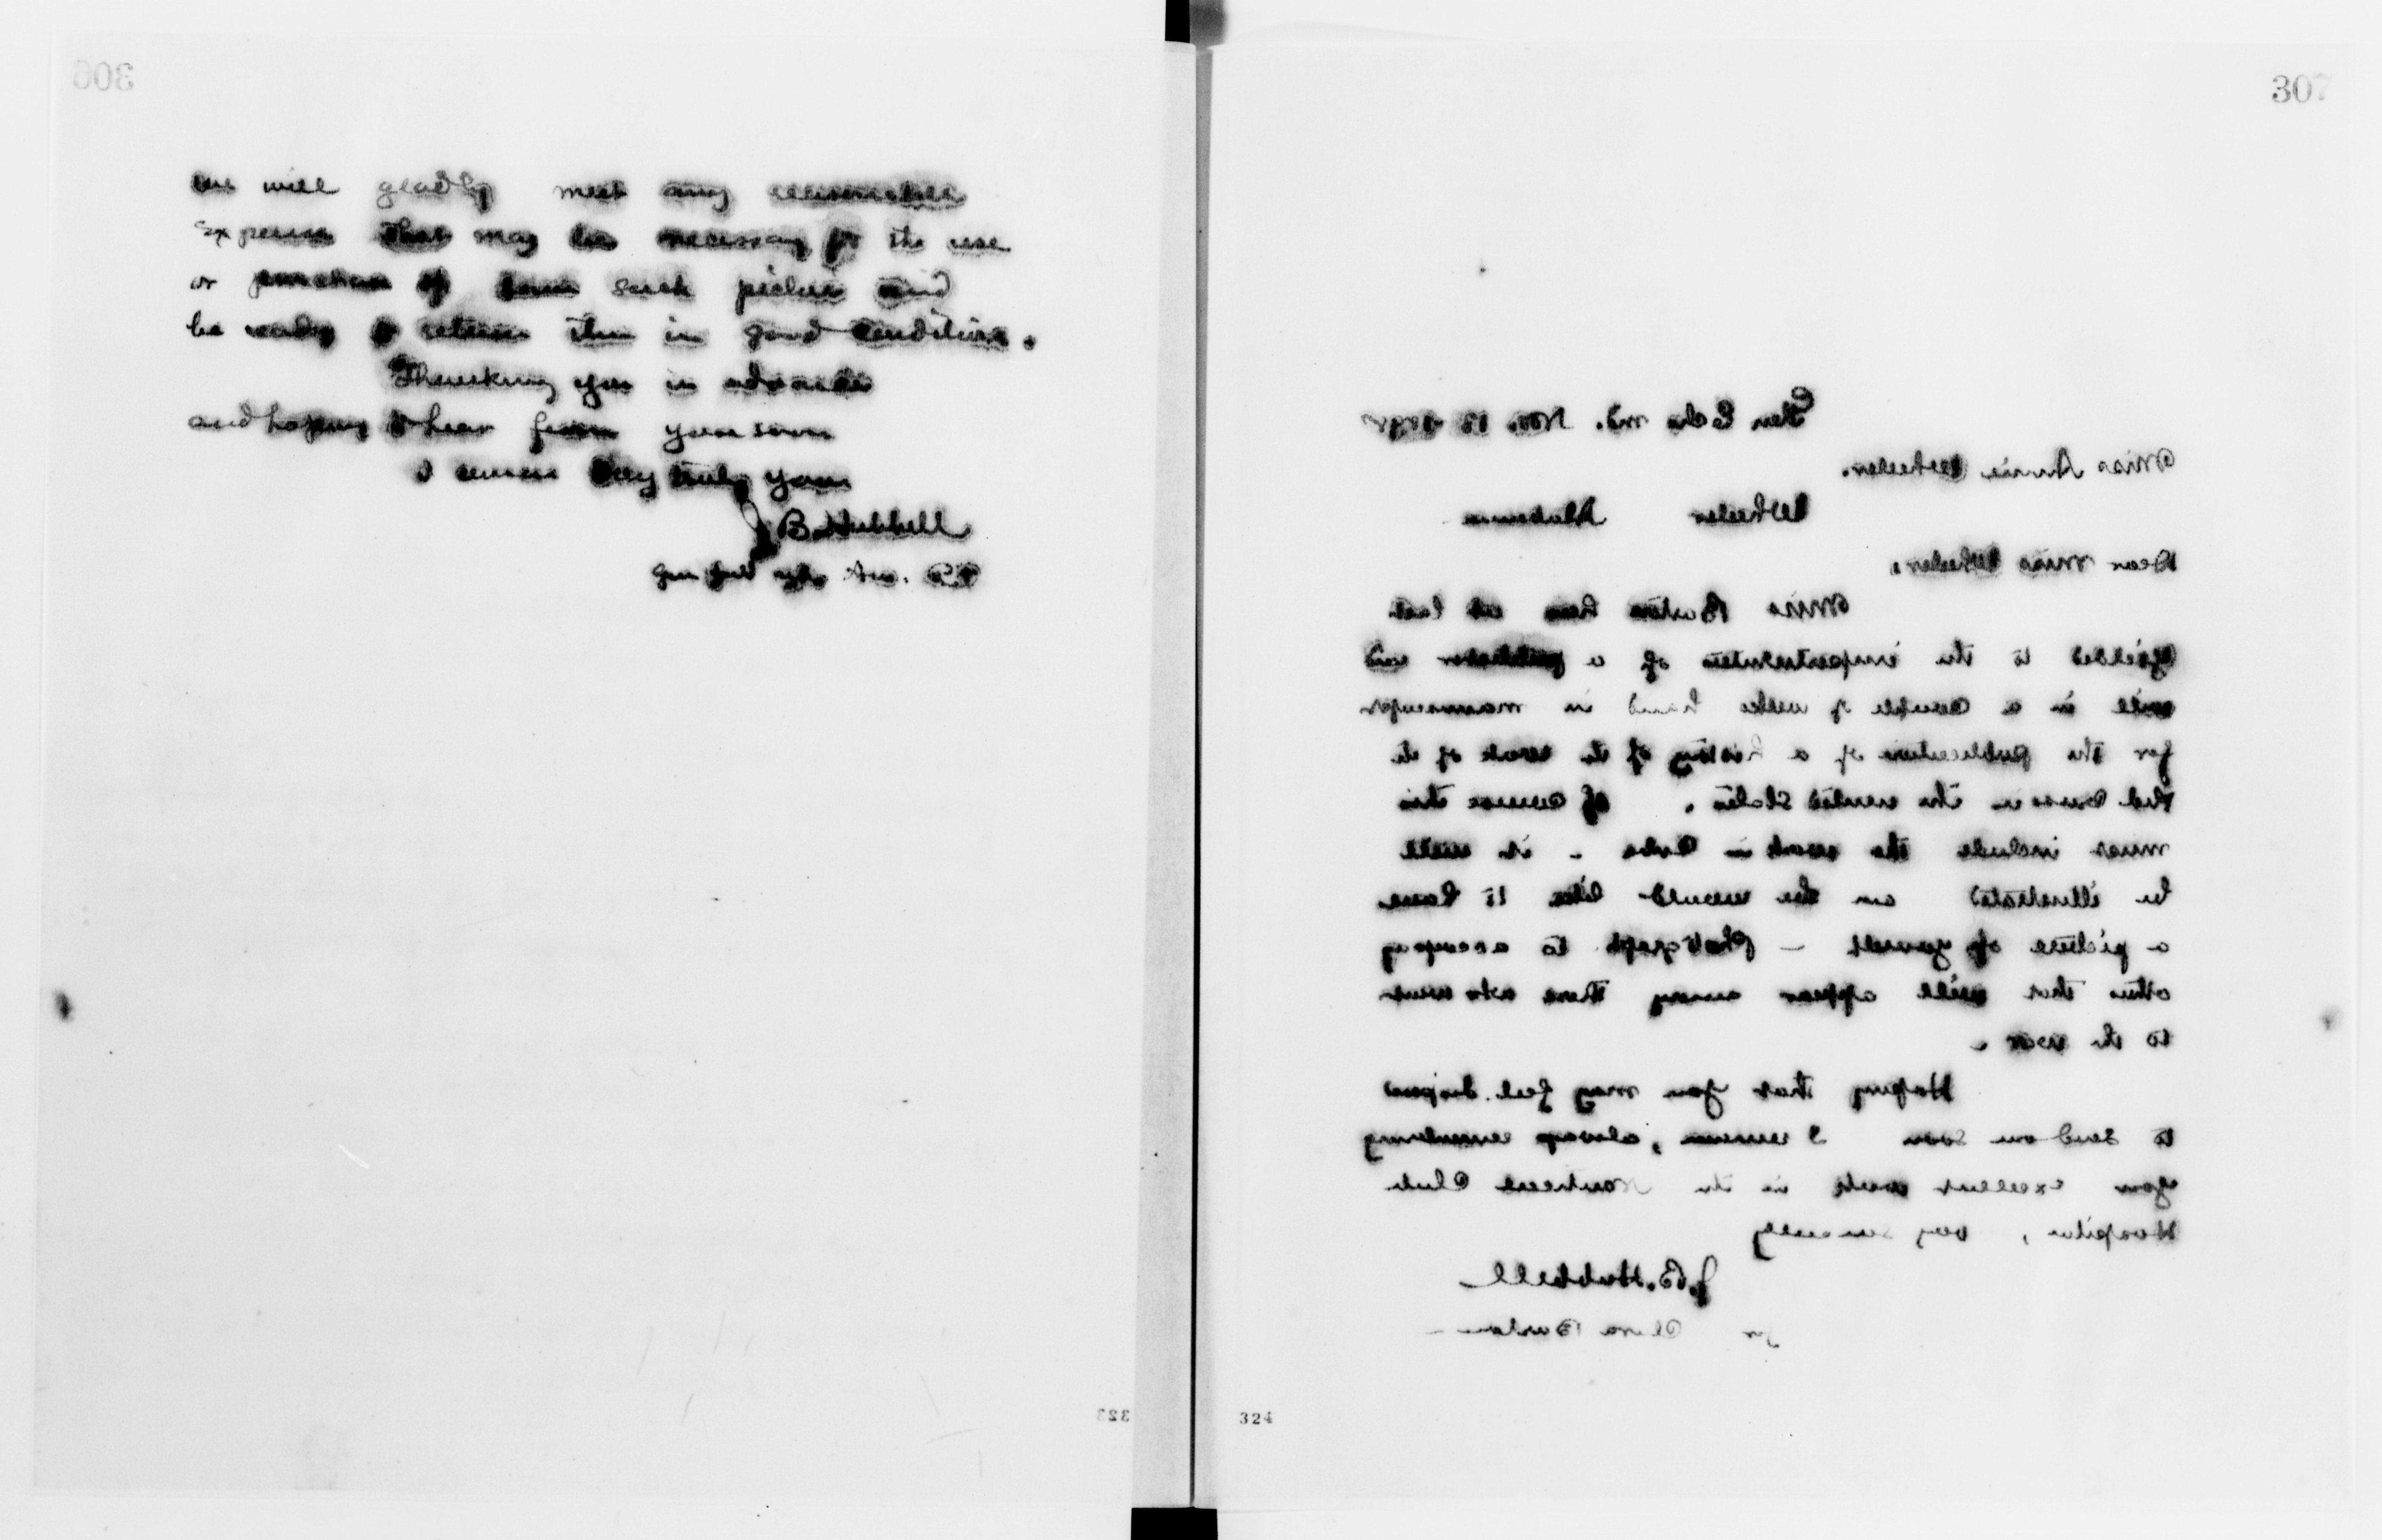 306
we will gladly meet any reasonable
expense that may be necessary for the use
or purchase of some such picture and
be ready to return them in good condition.
Thanking you in advance
and hoping to hear from you soon
I remain Very truly yours
J B. Hubbell
Gen
323
307
Glen Echo Md. Nov. 18
Miss Annie Wheeler.
Wheeler Alabama
Dear Miss Wheeler,
Miss Barton has at last
yielded to the importunities of a publisher and
will in a couple of weeks hand in manuscript
for the publication of a history of the work of the
Red Cross in the United States. Of course this
must include the work in Cuba - it will
be illustrated and she would like to have
a picture of yourself - Photograph to accompany
others that will appear among those who went
to the war.
Hoping that you may feel disposed
to send one soon I remain, always remembering
your excellent work in the Nautical Club
Hospital, very sincerely
J. B. Hubbell
for Clara Barton -
324